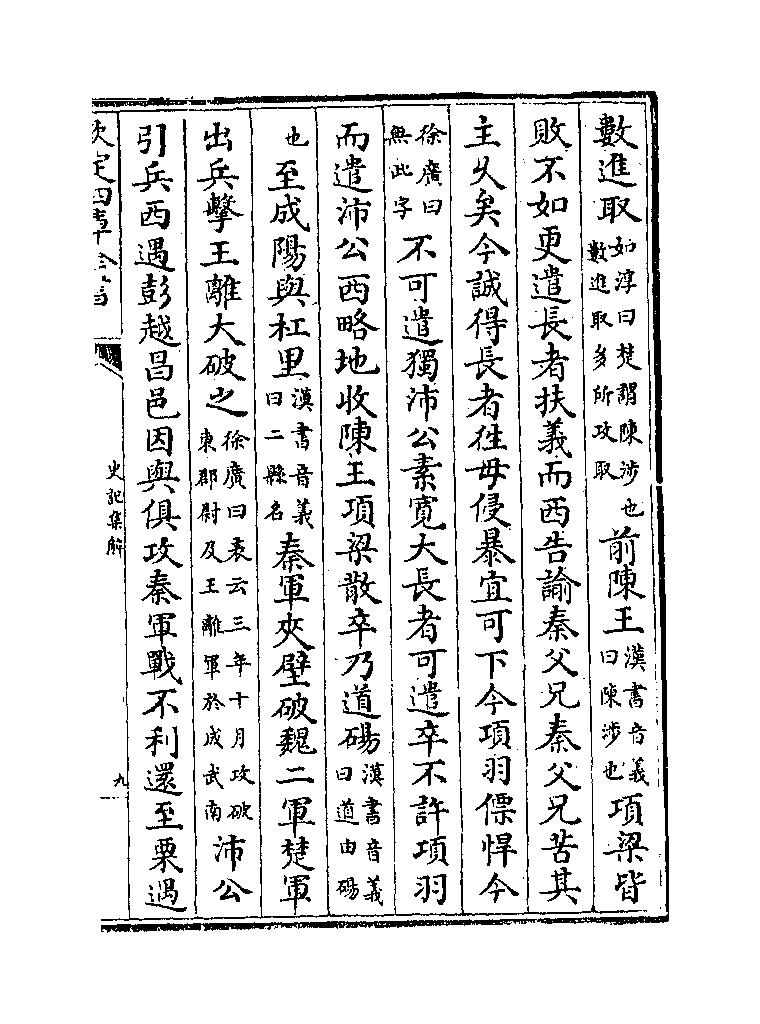 數進取如淳曰楚謂陳涉也數進取多所攻取前陳王漢書音義曰陳涉也項梁皆
敗不如更遣長者扶義而西告諭秦父兄秦父兄苦其
主乆矣今誠得長者徃毋侵暴宜可下今項羽僄悍今
徐廣曰無此字不可遣獨沛公素寛大長者可遣卒不許項羽
而遣沛公西略地收陳王項梁散卒乃道碭漢書音義曰道由碭
也至成陽與杠里漢書音義曰二縣名秦軍夾壁破魏二軍楚軍
出兵擊王離大破之徐廣曰表云三年十月攻破東郡尉及王離軍於成武南沛公
引兵西遇彭越昌邑因與俱攻秦軍戰不利還至栗遇
欽定四庫全書
史記集解
九